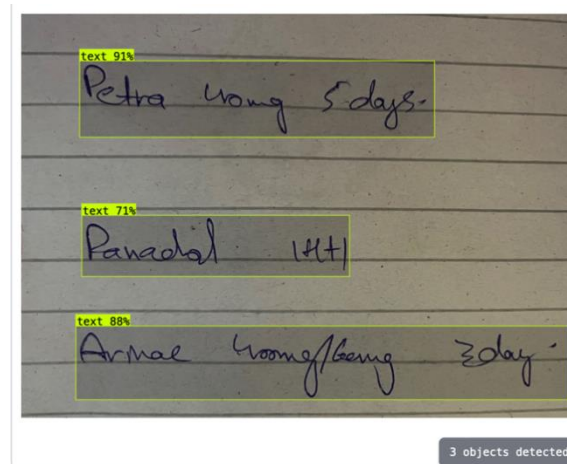 text 91%
Petra 40mg 5 days.
text 71%
Panadol 1+1+1
text 88%
3day.
3 objects detected